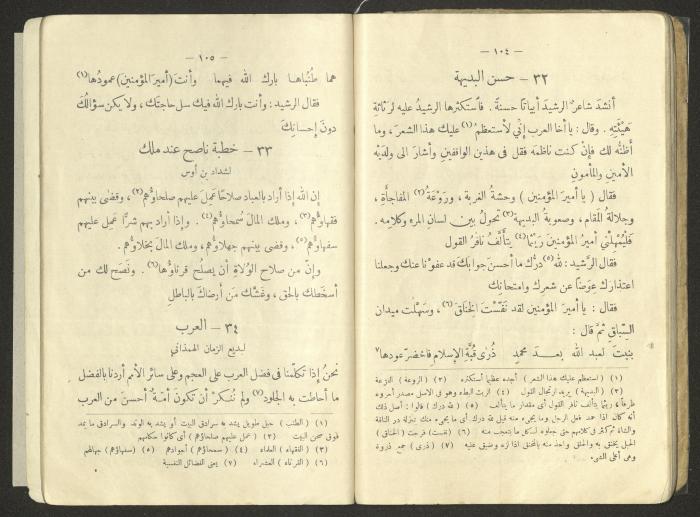 — ١٠٤ —
٣٢ – حسن البديهة
أنشد شاعرٌ الرشيدَ أبياتاً حسنةً . فاستكثرها الرشيدُ عليه لرثاثةِ
هَيْئَتِهِ . وقال : يا أخا العرب إنِّي لأستعظم(١) عليك هذا الشعرَ ، وما
أظنّه لك فإنْ كنت ناظمَه فقل في هذين الواقفين وأشار الى ولدَيْه
الأمين والمأمون
فقال ( يا أميرَ المؤمنين ) وحشةُ الغربة ، ورَوْعَةُ(٢) المفاجأةِ ،
وجلالةُ المَقام ، وصعوبةُ البديهة(٣) تحولُ بين لسانِ المرء وكلامه .
فليُمهِلْني أميرُ المؤمنين رَيْثما(٤) يتألّفُ نافرُ القول
فقال الرشيد : لله(٥) درُّك ما أحسنَ جوابك قد عفوْنا عنك وجعلنا
اعتذارك عِوَضاً عن شعرك وامتحانك
فقال : يا أميرَ المؤمنين لقد نفّسْتَ الخِناقَ(٦) ، وسَهّلت ميدان
السِّباق ثمَّ قال :
بنيتَ لعبد الله بعد محمدٍ ذُرى قُبّةِ الإسلامِ فاخضرّ عودها٧
(١) ( استعظم عليك هذا الشعر ) أجده عظيما أستكثره (٢) ( الروعة ) الفزعة
(٣) ( البديهة ) يريد ارتجال القول (٤) الريث البطاء وهو في الاصل مصدر أجروه
ظرفاً ، ريثما يتألف نافر القول أي مقدار ما يتألف (٥) ( لله درك ) قالوا : أصل ذلك
— ١٠٥ —
هما طُنُباها بارك الله فيهما وأنتَ (أميرَ المؤمنين) عمودُها(١)
فقال الرشيد : وأنت بارك الله فيك سل حاجتَك ، ولا يكن سؤالُكَ
دونَ إحسانِكَ
٣٣ – خطبة ناصح عند ملك
لشداد بن أوس
إن الله إذا أراد بالعباد صلاحًا عَمِلَ عليهم صلحاؤُهم(٢) ، وقضى بينهم
فقهاؤُهم(٣) ، وملك المالَ سُمحاؤُهم(٤) . وإذا أراد بهم شرًّا عَمِلَ عليهم
سفهاؤُهم(٥) ، وقضى بينهم جهلاؤُهم ، وملك المالَ بخلاؤُهم .
وإنّ من صلاح الوُلاةِ أن يصلُح قرناؤُها(٦) . ونَصَح لك من
أسخَطك بالحق ، وغَشّك مَن أرضاكَ بالباطلِ
٣٤ – العرب
لبديع الزمان الهمذاني
نحنُ إذا تكلّمنا في فضل العرب على العجم وعلى سائر الأمم أردنا بالفضل
ما أحاطت به الجلود(٧) ولم نُنكرْ أن تكونَ أمّةٌ أحسنَ من العرب
(١) ( الطنب ) حبل طويل يشد به سرادق البيت أو يشد به الوتد والسرادق ما يمد
فوق صحن البيت (٢) ( عمل عليهم صلحاؤهم ) أي كانوا حكامهم
(٣) ( الفقهاء ) العلماء (٤) ( سمحاؤهم ) أجوادهم (٥) ( سفهاؤهم ) جهالهم
(٦) ( القرناء ) العشراء (٧) يعني الفضائل النفسية